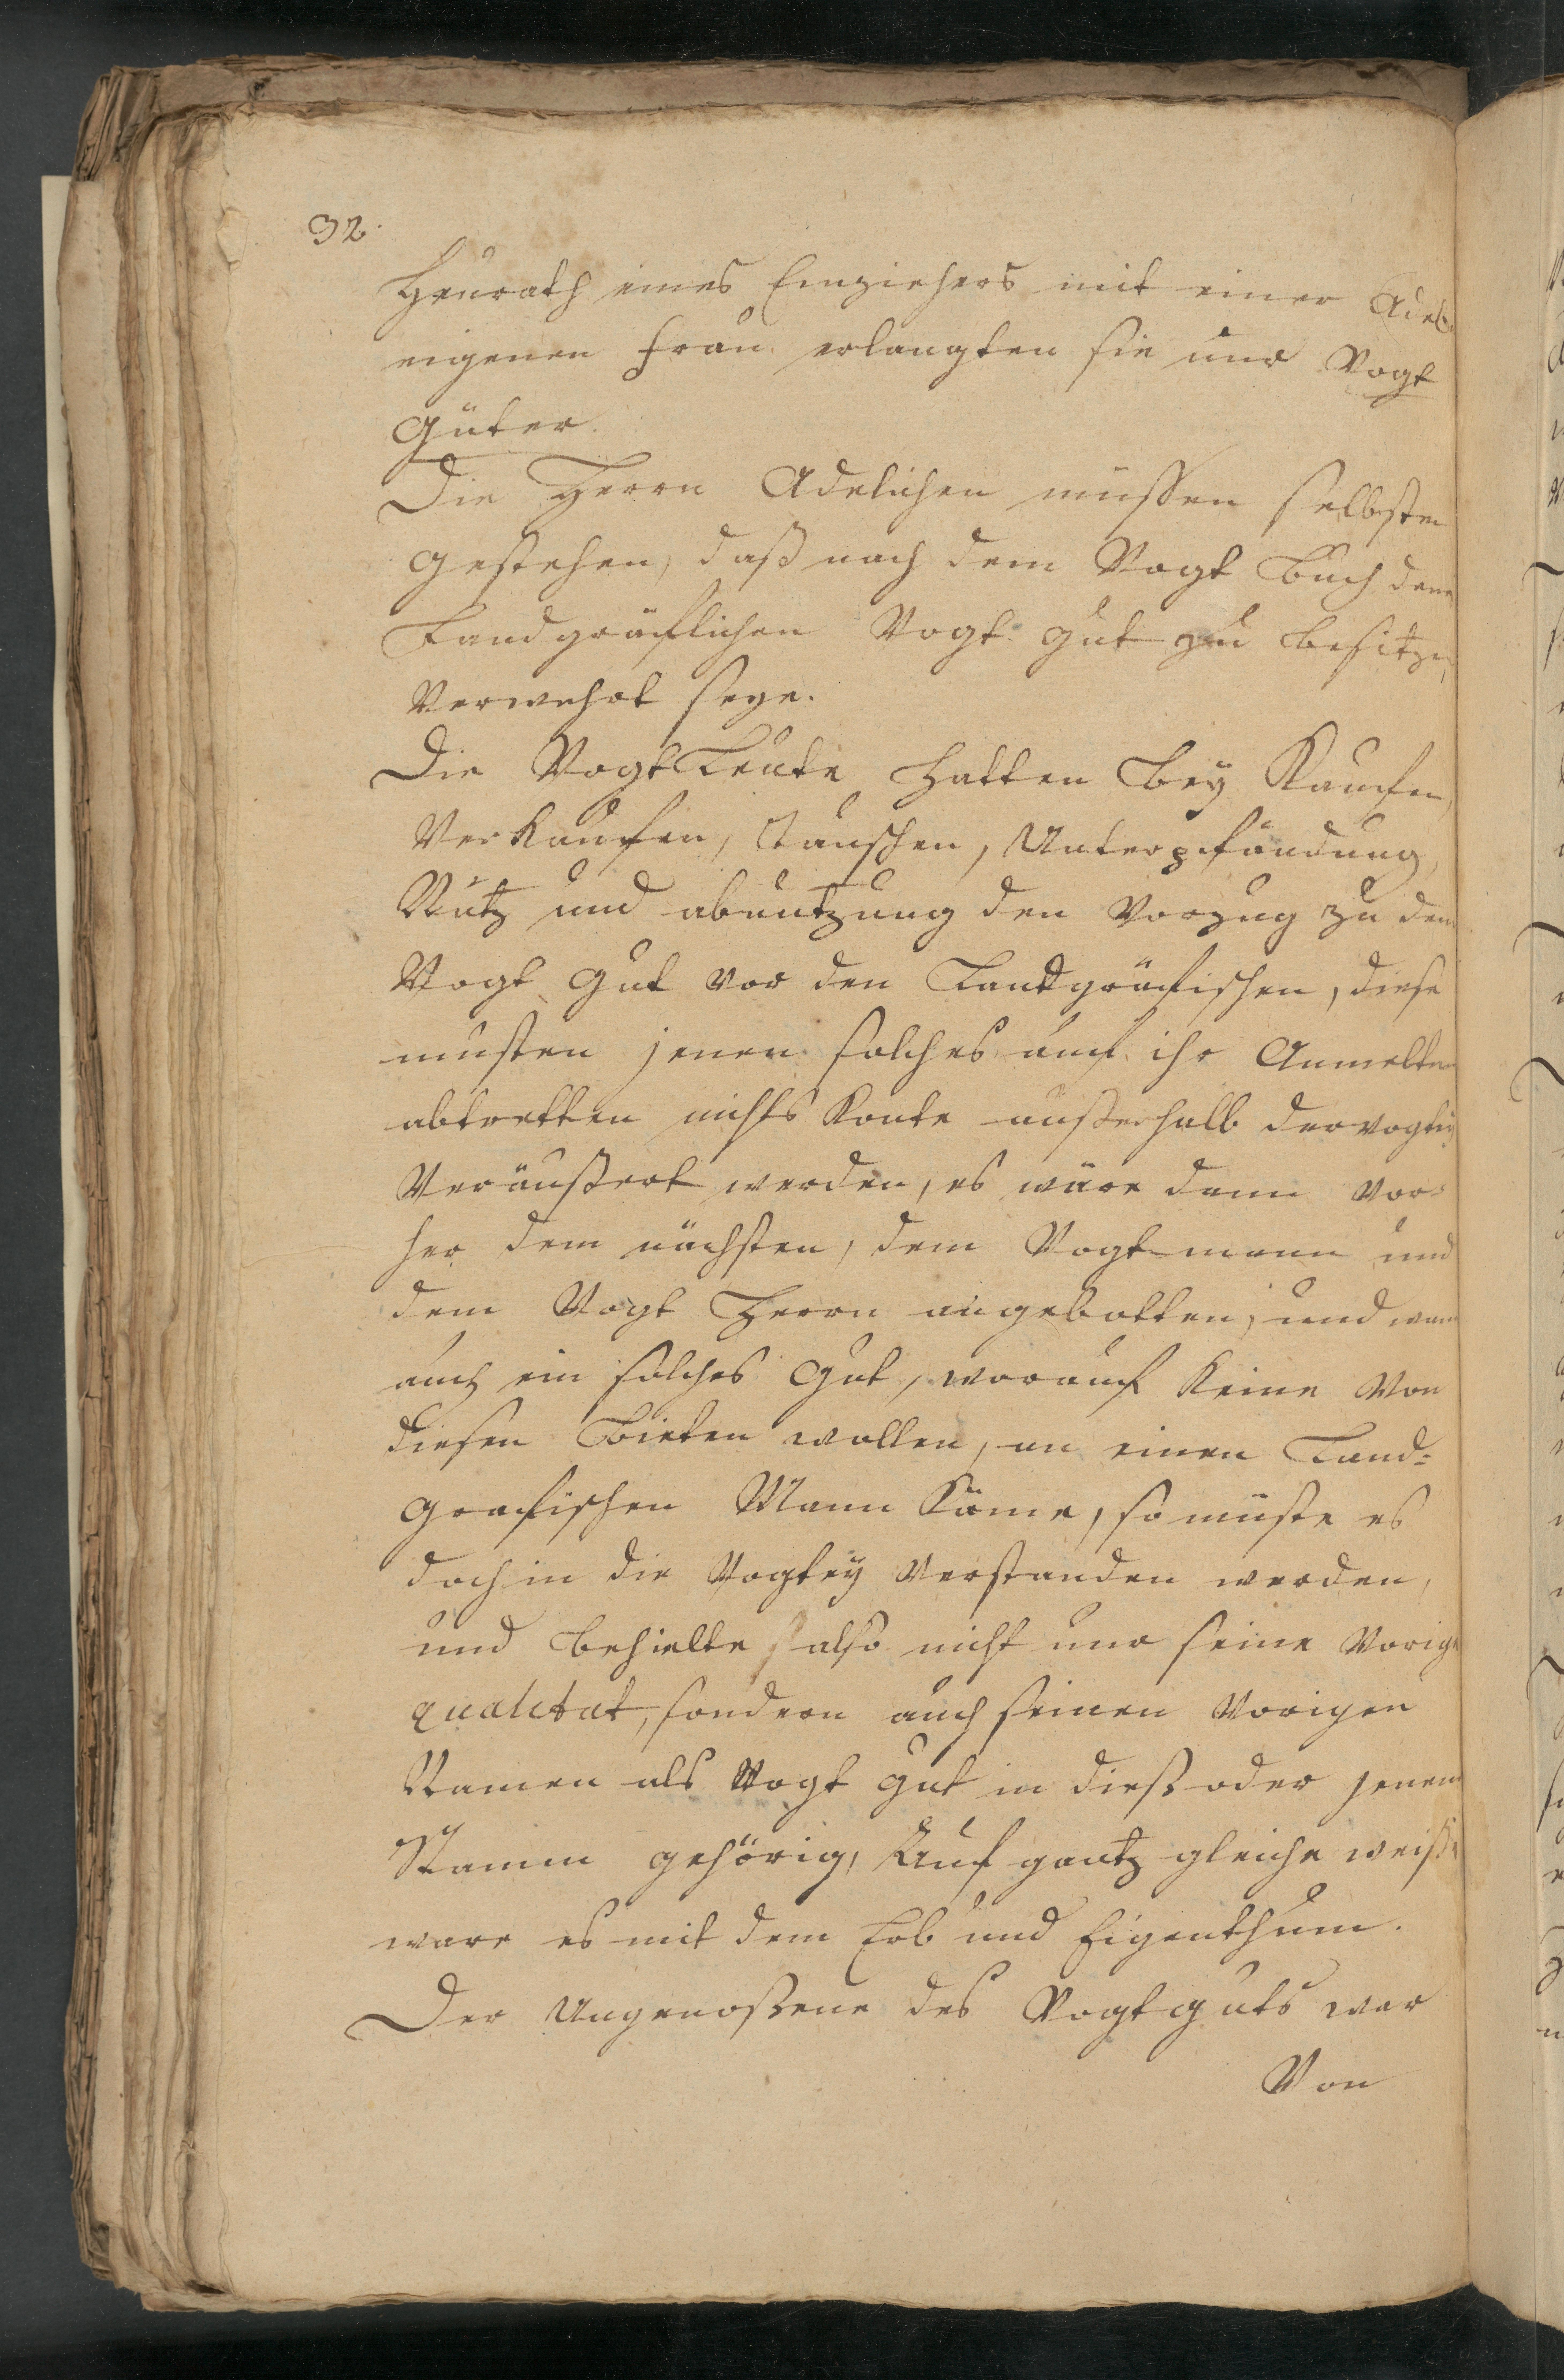 32.
Heurath eines Einziehers mit einer Adel
eigenen Frau erlangten sie nur Vogt
Güter.
Die Herrn Adelichen müssen selbsten
gestehen, daß nach dem Vogt Buch denen
Landgräflichen Vogt gut zu besitzen,
Verwehrt seye.
Die Vogt Leute hatten bey Kaufen,
Verkaufen, Tauschen, Unterpfändung,
Nutz und abnutzung den Vorzug zu dem
Vogt Gut vor den Landgräfischen, diese
musten jenen solches auf ihr Anmelten
abtretten nichts konte außerhalb der vogtey
Veräußert werden, es wäre dann vor-
her dem nächsten, dem Vogt-mann und
dem Vogt Herrn angebotten, und wann
auch ein solches Gut, worauf keine von
diesen bieten wollen, an einen Land-
grafischen Mann käme, so müste es
doch in die Vogtey verstanden werden,
und behielte also nicht nur seine vorige
qualitat, sondern auch seinen vorigen
Namen als Vogt gut in dieß oder jenem
Stamm gehörig, Auf gantz gleiche weiße
ware es mit dem Erb und Eigenthum.
Der Ungenoßene des Vogtguts war
Von